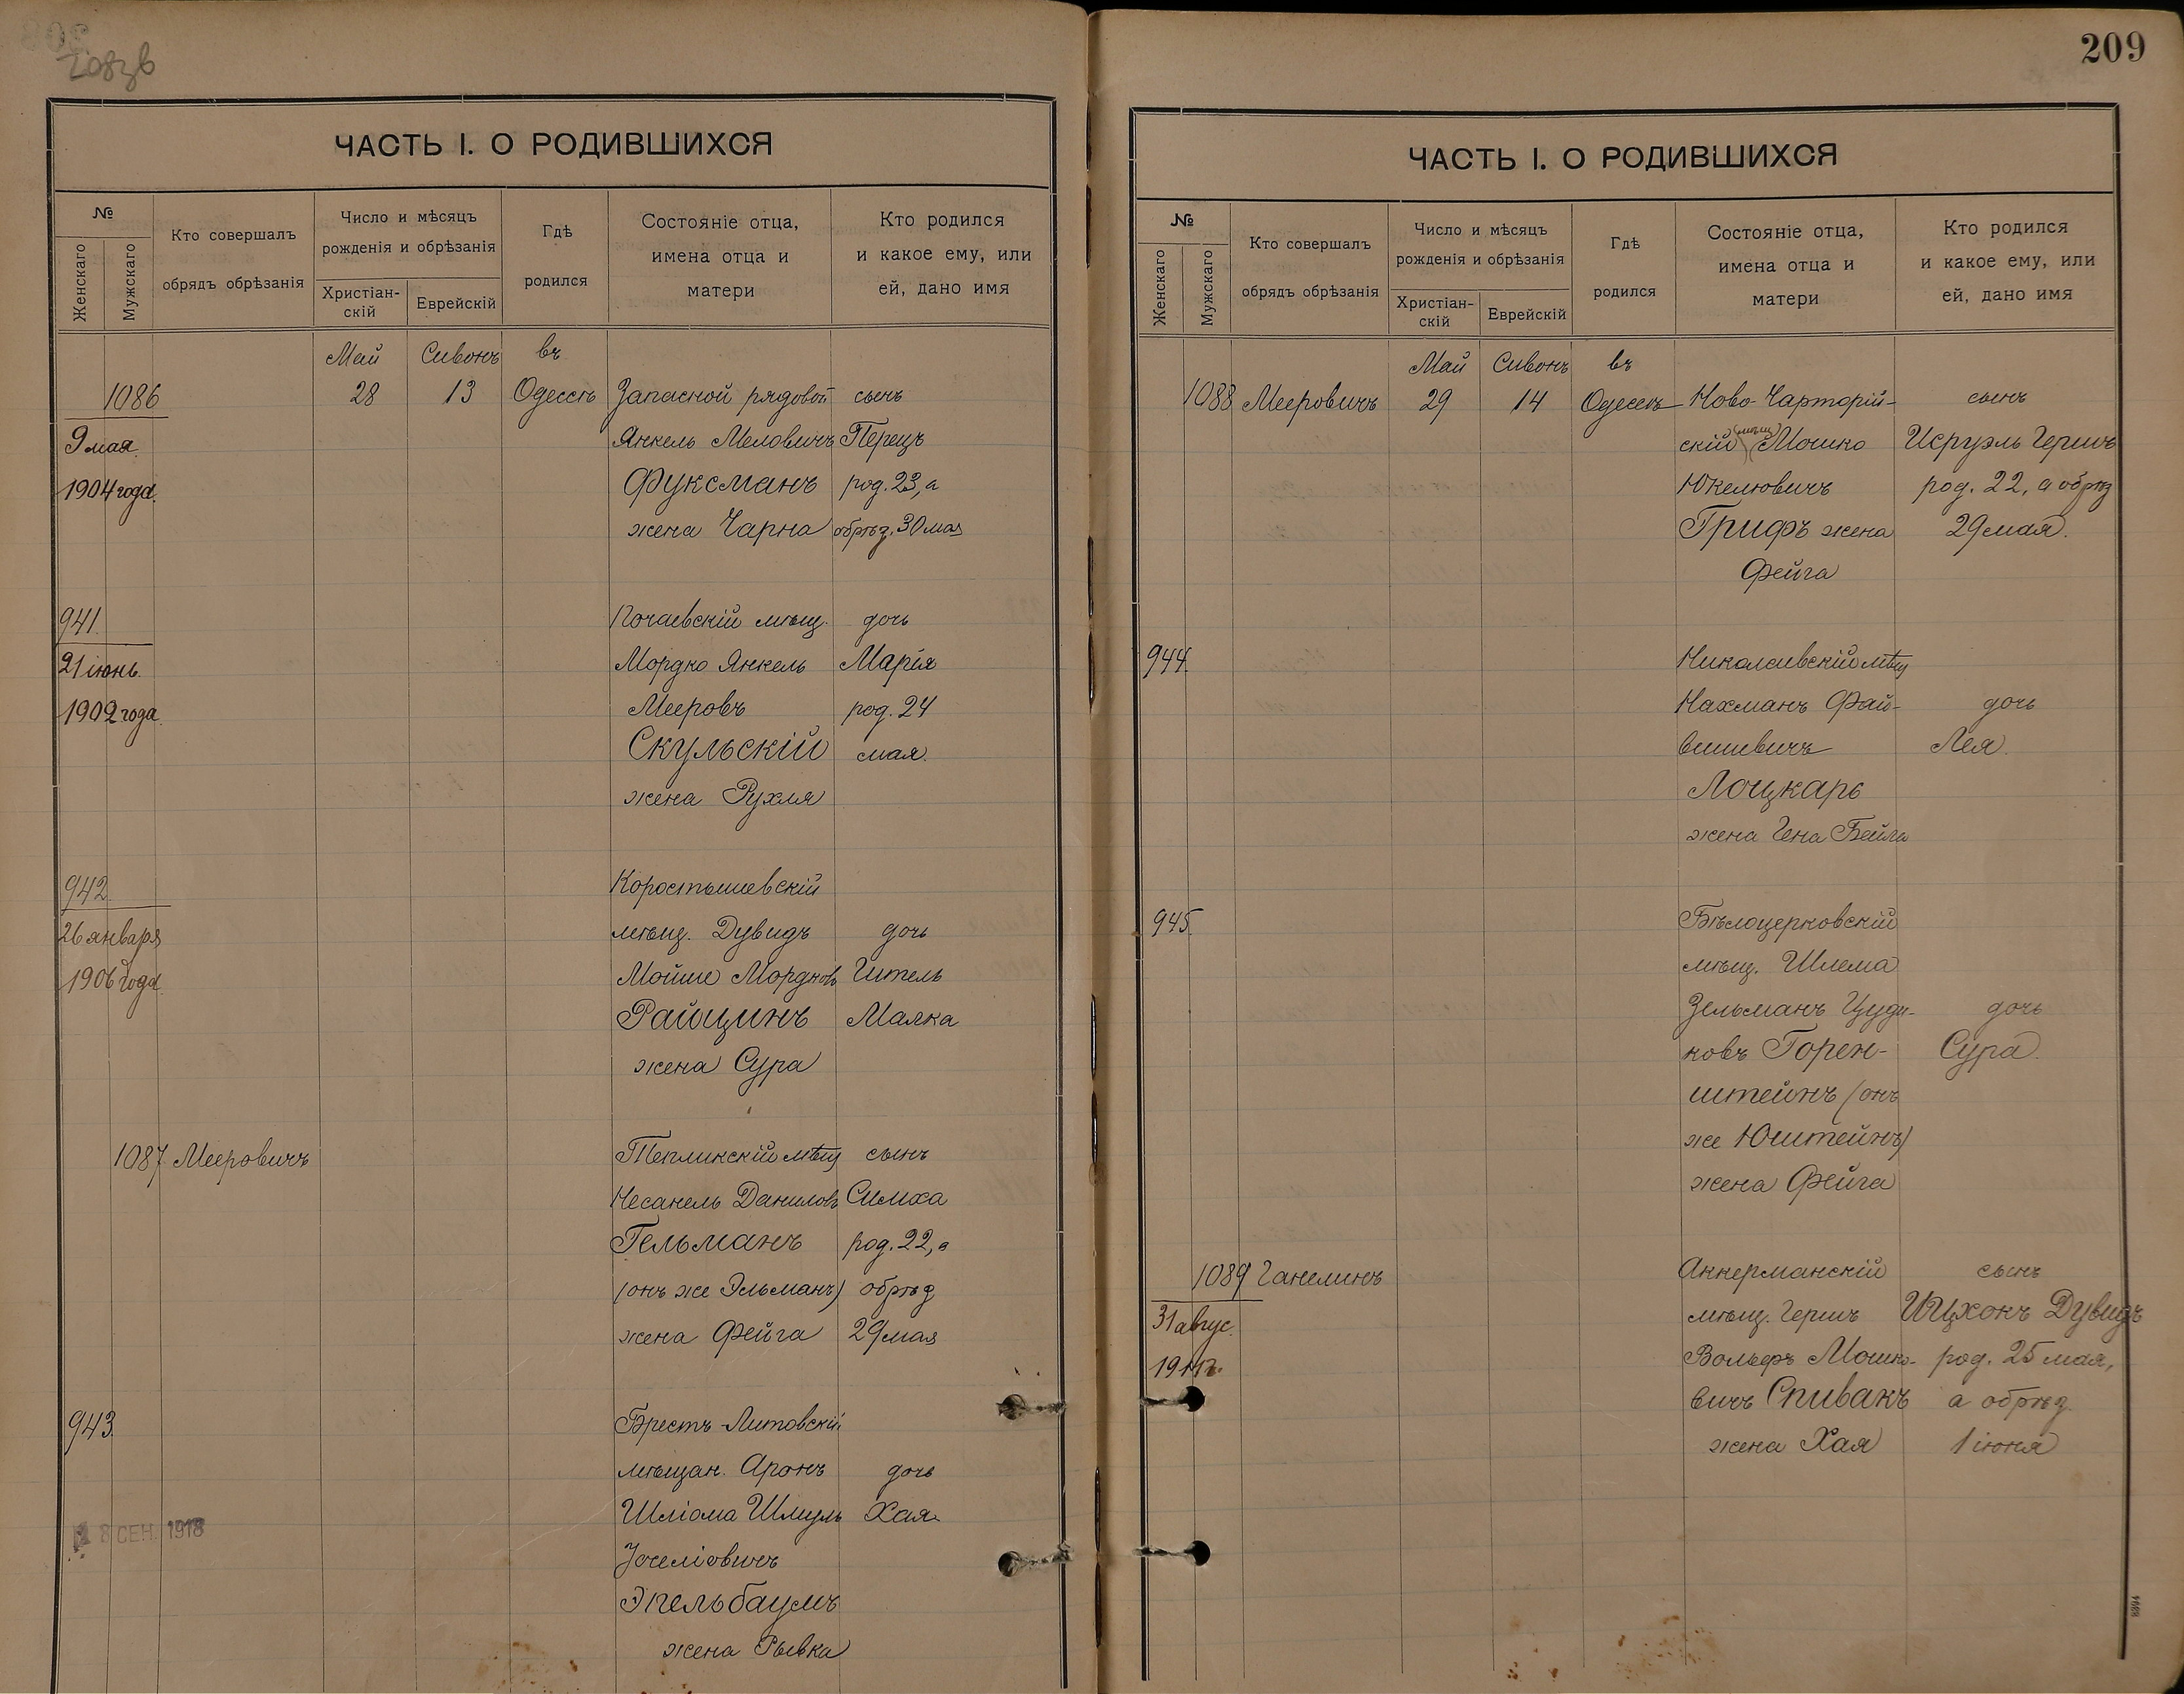 208 зв
ЧАСТЬ I. О РОДИВШИХСЯ
№
Женскаго
Мужскаго
Кто совершалъ
обрядъ обрѣзанія
Число и мѣсяцъ
рожденія и обрѣзанія
Христіан-
скій
Еврейскій
Гдѣ
родился
Состояніе отца,
имена отца и
матери
Кто родился
и какое ему, или
ей, дано имя
Май Сивонъ въ
1086 28 13 Одессѣ Запасной рядовой сынъ
9 мая Янкель Меловичъ Перецъ
1904 года. Фуксманъ род. 23, а
жена Чарна обрѣз. 30 мая
941. Почаевскій мѣщ. дочь
21 іюнь Мордко Янкель Марія
1902 года. Мееровъ род. 24
Скульскій мая.
жена Рухля
942 Коростышевскій
26 января мѣщ. Дувидъ дочь
1906 года Мойше Мордковъ Гитель
Райцинъ Малка
жена Сура
1087 Мееровичъ Теплинскій мѣщ сынъ
Несанель Даниловъ Симха
Гельманъ род. 22, а
(онъ же Эльманъ) обрѣз
жена Фейга 29 мая
943. Брестъ-Литовскій
мѣщан. Аронъ дочь
Шліома Шмуль Хая
8 СЕН. 1918
Іоселіовичъ
Эпельбаумъ
жена Рывка
209
ЧАСТЬ I. О РОДИВШИХСЯ
№
Женскаго
Мужскаго
Кто совершалъ
обрядъ обрѣзанія
Число и мѣсяцъ
рожденія и обрѣзанія
Христіан-
скій
Еврейскій
Гдѣ
родился
Состояніе отца,
имена отца и
матери
Кто родился
и какое ему, или
ей, дано имя
Май Сивонъ въ
1088 Мееровичъ 29 14 Одессѣ Ново-Чарторій- сынъ
скій (мѣщ) Мошко Исруэль Гершъ
Юкелювичъ род. 22, а обрѣз
Грифъ жена 29 мая.
Фейга
944. Николаевскій мѣщ
Нахманъ Фай- дочь
вишевичъ Лея.
Лоцкарь
жена Гена Бейла
945. Бѣлоцерковскій
мѣщ. Шлема
Зельманъ Цуди- дочь
ковъ Горен- Сура.
штейнъ (онъ
же Юштейнъ)
жена Фейга
1089 Ганелинъ Аккерманскій сынъ
31 авгус. мѣщ. Гершъ Ицхокъ Дувидъ
1911 г. Вольфъ Мошко- род. 25 мая,
вичъ Спивакъ а обрѣз.
жена Хая 1 іюня